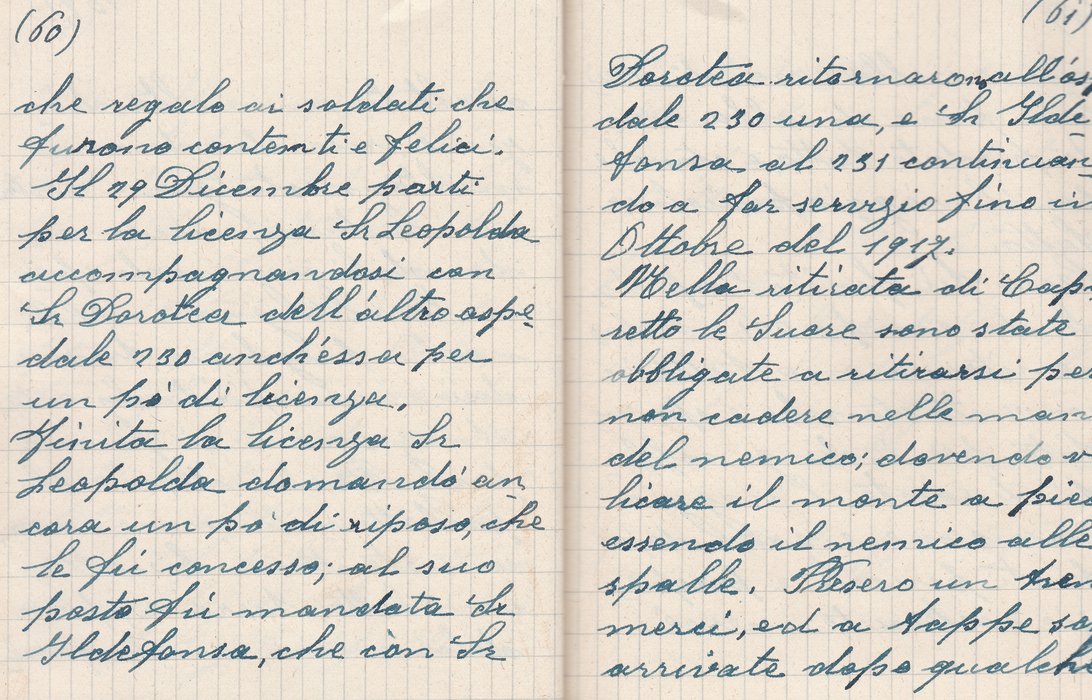 (60)
che regalo ai soldati che
furono contenti e felici.
Il 29 Dicembre parti
per la licenza Sr Leopolda
accompagnandosi con
Sr Dorotea dell'altro ospe-
dale 230 anch'essa per
un pò di licenza.
Finita la licenza Sr
Leopolda domandó an-
cora un pò di riposo, che
le fú concesso; al suo
posto fú mandata Sr
Ildefonsa, che còn Sr
(61)
Dorotea ritornaron all'os
dale 230 una, e Sr Ilde-
fonsa al 231 continuan-
do a far servizio fino in
Ottobre del 1917.
Nella ritirata di Cap
retto le Suore sono state
obbligate a ritirarsi per
non cadere nelle man
del nemico; dovendo v
licare il monte a pie
essendo il nemico alle
spalle. Presero un tren
merci, ed a tappe so
arrivate dopo qualche